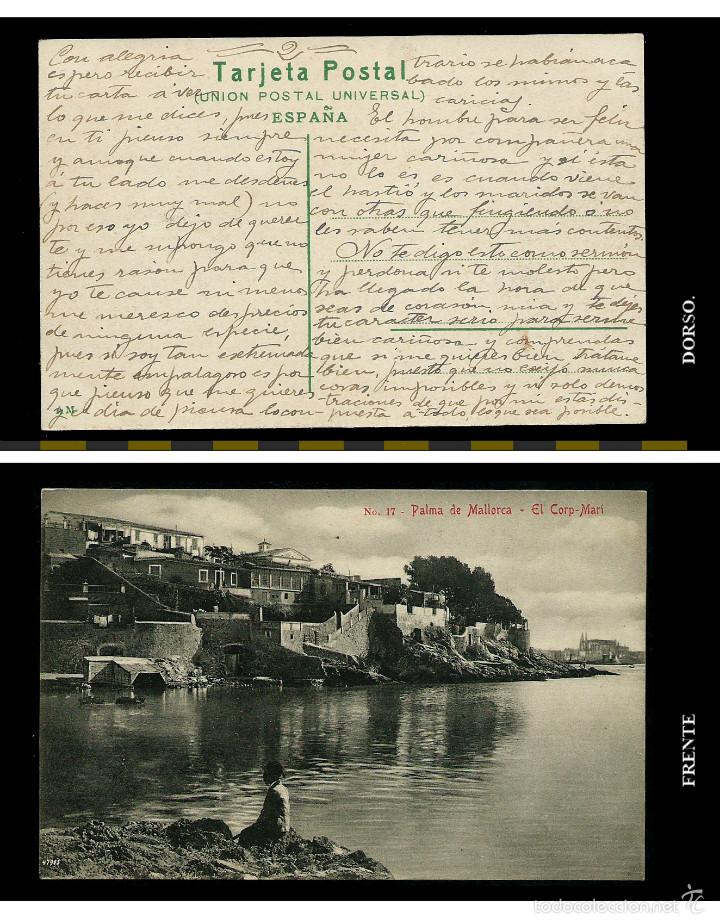 2
Con alegria
espero recibir
tu carta á ver
lo que me dices, pues
en ti pienso siempre
y aunque cuando estoy
á tu lado me desdeñes
(y haces muy mal) no
por eso yo dejo de querer
te y me supongo que no
tienes rasón para que
yo te cause ni menos
me meresco desprecios
de ninguna especie,
pues si soy tan extremada
mente empalagoso es por
que pienso que me quieres
y el dia de piensa lo con
Tarjeta Postal
(UNION POSTAL UNIVERSAL)
ESPAÑA
trario se habian aca
bado los mimos y las
caricias.
El hombre para ser feliz
necesita por compañera una
mujer cariñosa y si ésta
no lo es es cuando viene
el hastió y los maridos se van
con otras que fingiendo ó no
les saben tener mas contentos
No te digo esto como sermón
y perdona si te molesto pero
ha llegado la hora de que
seas de corasón mia y te dejes
tu caracter serio para serme
bien cariñosa y comprendas
que si me quieres bien tratame
bien, puesto que no exijo nunca
cosas imposibles y si solo demos
traciones de que por mi estas dis-
puesta á todo, lo que sea posible.
AM
DORSO.
No. 17 - Palma de Mallorca - El Corp-Mari
47985
FRENTE
© todocoleccion.net
tc